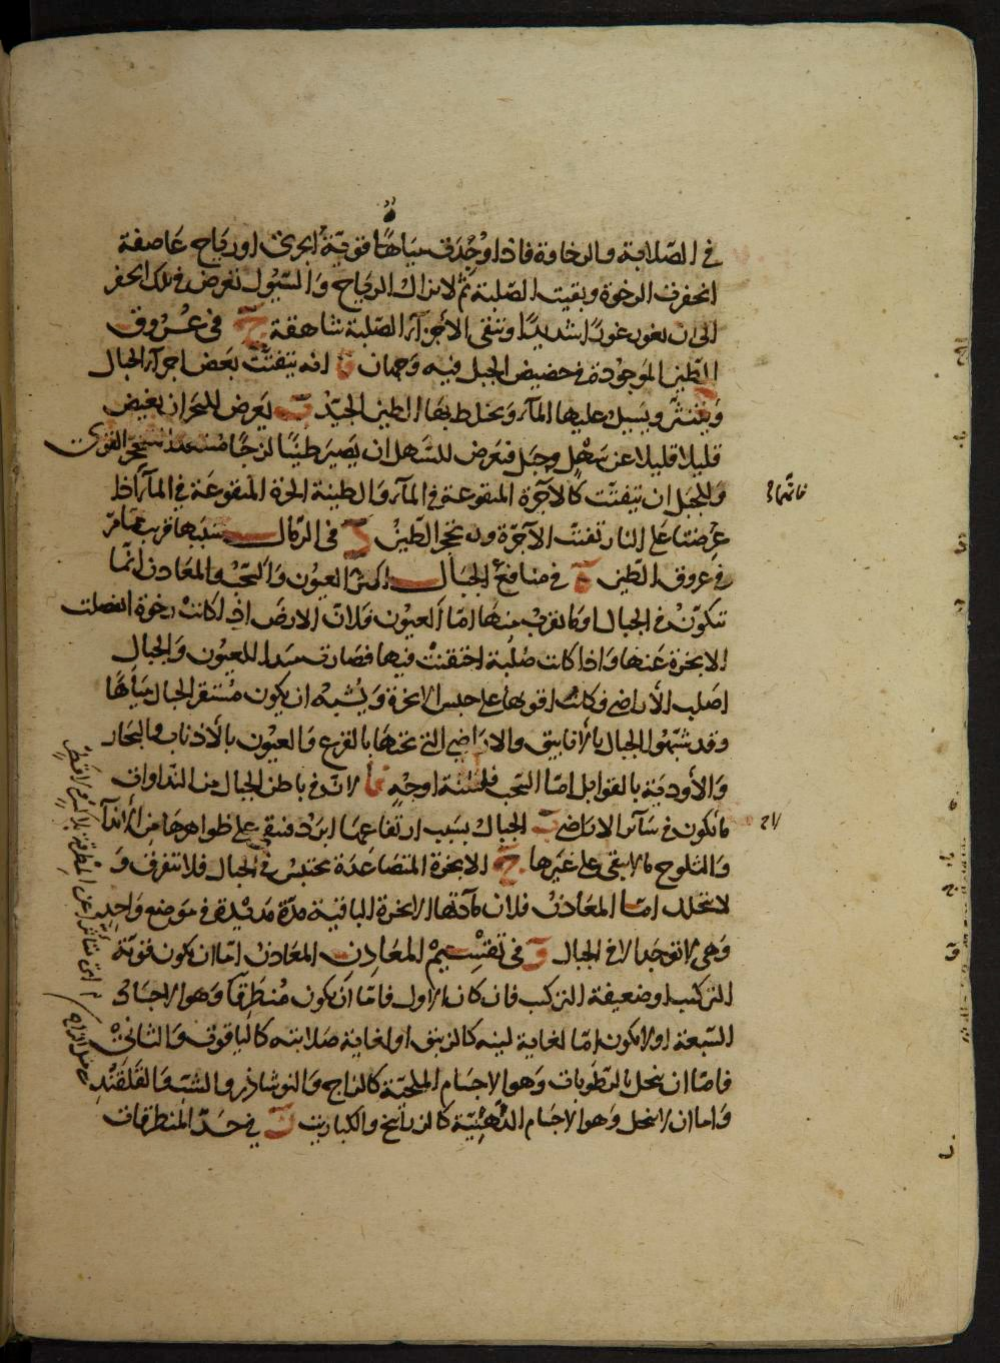 في الصلابة والرخاوة فاذا وجدت مياها قوية الجري او رياح عاصفة
انحفرت الرخوة وبقيت الصلبة ثم لا تزال الرياح والسيول تغوص في تلك الحفر
الى ان تغور غورا شديدا وتبقى الأجزآء الصلبة شاهقة ج في عروق
الطين الموجودة في حضيض الجبل فيه وجهان آ انه يتفتت بعض اجزآء الجبال
وينتثر ويسيل عليها المآء ويختلط بها الطين الجيد ب يعرض للبحر ان يغيض
قليلا قليلا عن سهل وجبل فيعرض للسهل ان يصير طينا لزجا مستعدا للتحجر القوى
وللجبل ان يتفتت كالآجرة المنقوعة في المآء والطينة الحرة المنقوعة في المآء اذا
عرضتا على النار تفتت الآجرة وتحجر الطين د في الرمال سببها قريب مما مر
في عروق الطين ه في منافع الجبال اكثر العيون والسحب والمعادن انما
تتكون في الجبال او ما يقرب منها اما العيون فلان الارض اذا كانت رخوة انفصلت
الابخرة عنها واذا كانت صلبة اختقنت فيها فصارت مبدا للعيون والجبال
اصلب الأراضي فكانت اقواها على حبس الابخرة ويشبه ان يكون مستقر الجبال مياها
وقد شبهوا الجبال بالأنابيق والاراضي التي تحتها بالقرع والعيون بالأذناب والبحار
والأودية بالقوابل اما السحب فلثلثة اوجه آ ان في باطن الجبال من النداوات
ما يكون في سآئر الاراضي ب الجبال بسبب ارتفاعها ابرد فيبقى على ظواهرها من الأندآء
والثلوج ما لا يبقى على غيرها ج الابخرة المتصاعدة تحتبس في الجبال فلا تتفرق و
لا تتحلل اما المعادن فلان مآدتها الابخرة الباقية مدة مديدة في موضع واحد
وهي لا توجد الا في الجبال و في تقسيم المعادن المعادن اما ان يكون قوية
التركيب او ضعيفة التركيب فان كان الاول فاما ان يكون منطرقا وهو الاجساد
السبعة او لا يكون اما لغاية لينه كالزيبق او لغاية صلابته كالياقوت والثاني
فاما ان ينحل بالرطوبات وهو الاجسام الملحية كالزاج والنوشاذر والشب والقلقند
واما ان لا ينحل وهو الاجسام الدهنية كالزرنيخ والكباريت ز في حد المنطرقات
فانهما